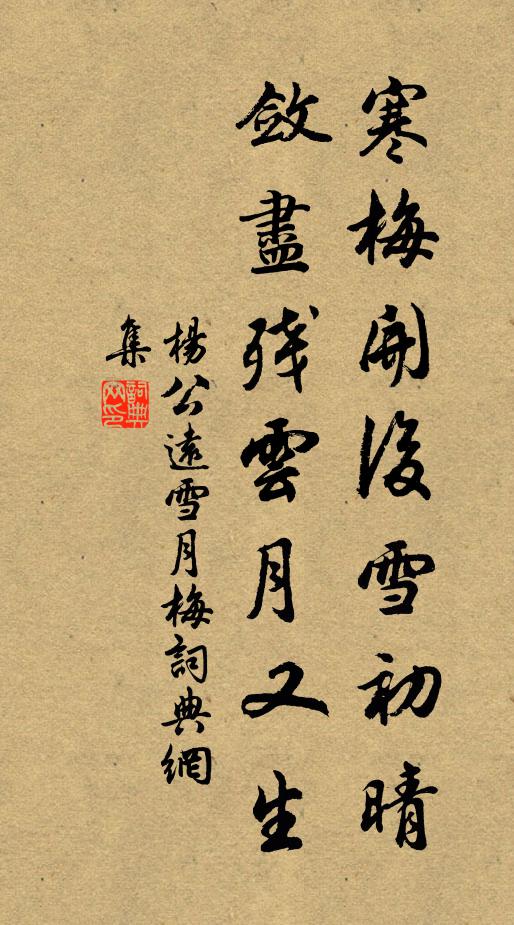 寒梅開後雪初晴
斂盡殘雲月又生
楊公遠雪月梅詞典網
集
詞典
网印